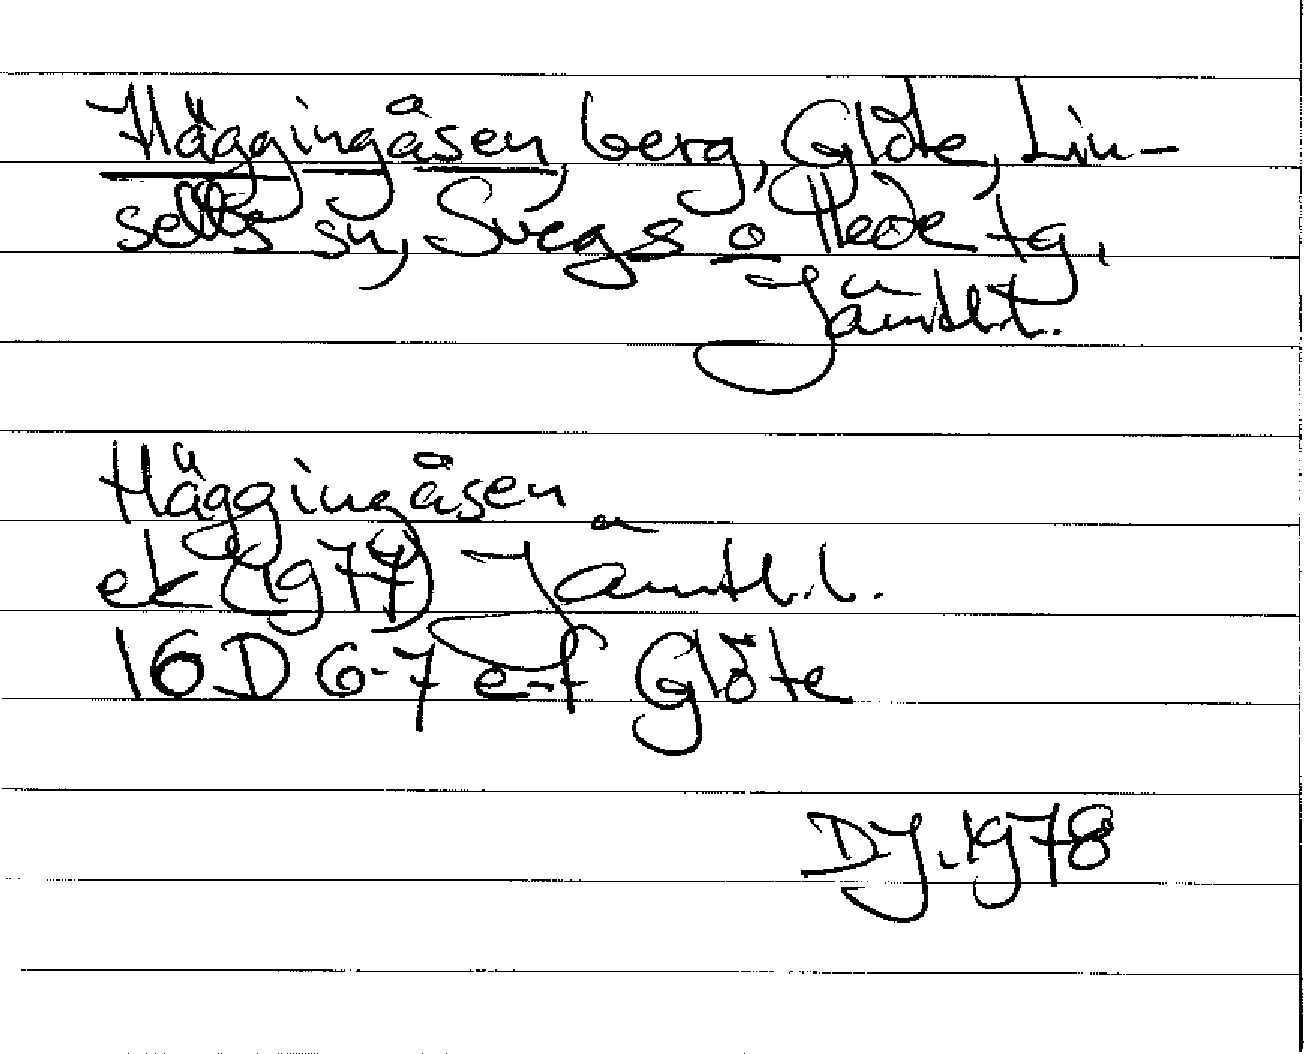 Häggingåsen, berg, Glöte, Lin-
sells sn, Svegs o Hede tg,
Jämtl.l.
Häggingåsen
ek (1974) Jämtl.l.
16D 6-7 e-f Glöte
DJ. 1978